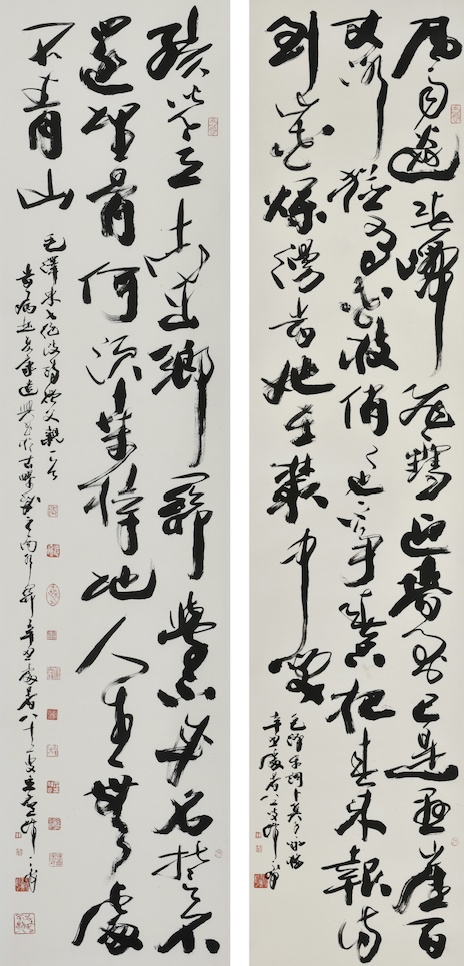 風雨送春歸飛雪迎春到已是懸崖百
丈冰猶有花枝俏々也不爭春只把春來報待
到山花爛漫時她在叢中笑
毛澤東詞卜算子詠梅
孩兒立志出鄉關學不成名誓不
還埋骨何須桑梓地人生無處
不青山
毛澤東七絕改詩贈父親一首